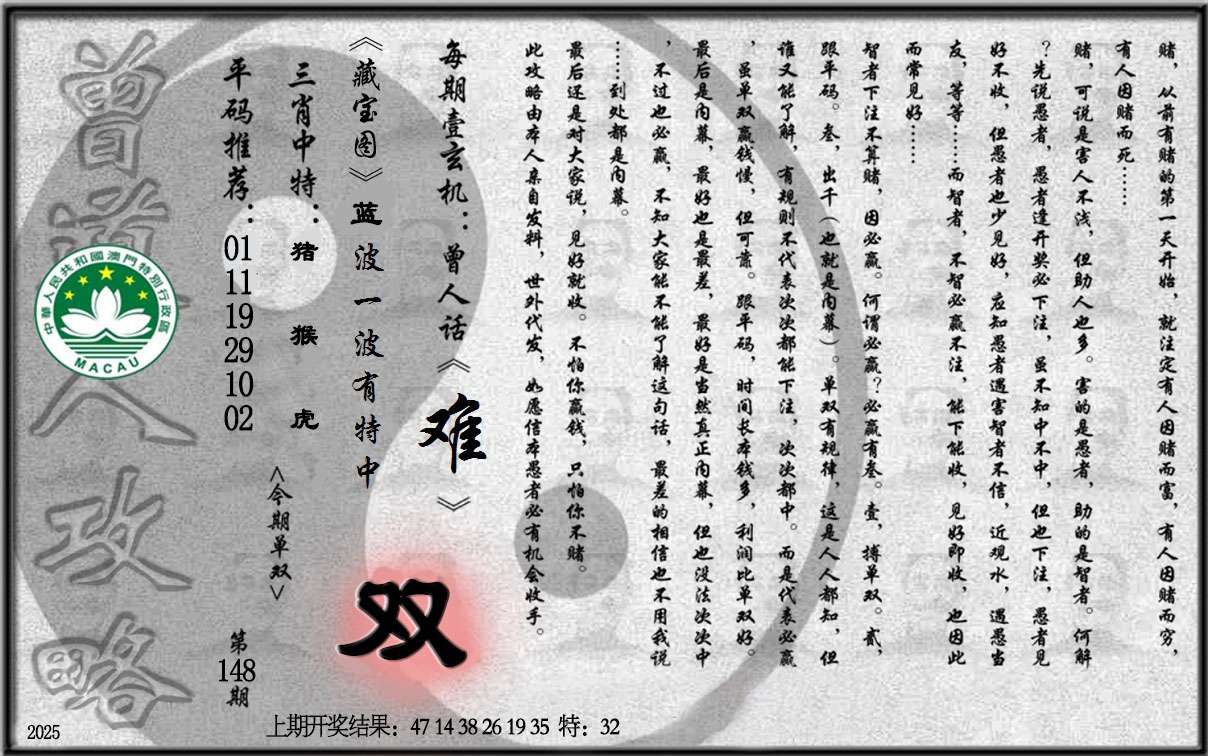 赌，从前有赌的第一天开始，就注定有人因赌而富，有人因赌而穷，
有人因赌而死……
赌，可说是害人不浅，但助人也多。害的是愚者，助的是智者。何解
？先说愚者，愚者逢开奖必下注，虽不知中不中，但也下注，愚者见
好不收，但愚者也少见好，应知愚者遇害智者不信，近观水，遇愚当
友，等等……而智者，不智必赢不注，能下能收，见好即收，也因此
而常见好……
智者下注不算赌，因必赢。何谓必赢？必赢有叁。壹，搏单双。贰，
跟平码。叁，出千（也就是内幕）。单双有规律，这是人人都知，但
谁又能了解，有规则不代表次次都能下注，次次都中。而是代表必赢
，虽单双赢钱慢，但可靠。跟平码，时间长本钱多，利润比单双好。
最后是内幕，最好也是最差，最好是当然真正内幕，但也没法次次中
，不过也必赢，不知大家能不能了解这句话，最差的相信也不用我说
……到处都是内幕。
最后还是对大家说，见好就收。不怕你赢钱，只怕你不赌。
此攻略由本人亲自发料，世外代发，如愿信本愚者必有机会收手。
每期壹玄机：曾人话《难》
《藏宝图》蓝波一波有特中
双
三肖中特：猪猴虎
<今期单双>
平码推荐：01 11 19 29 10 02
第148期
曾道人攻略
中華人民共和國澳門特別行政區
MACAU
2025
上期开奖结果：47 14 38 26 19 35 特：32